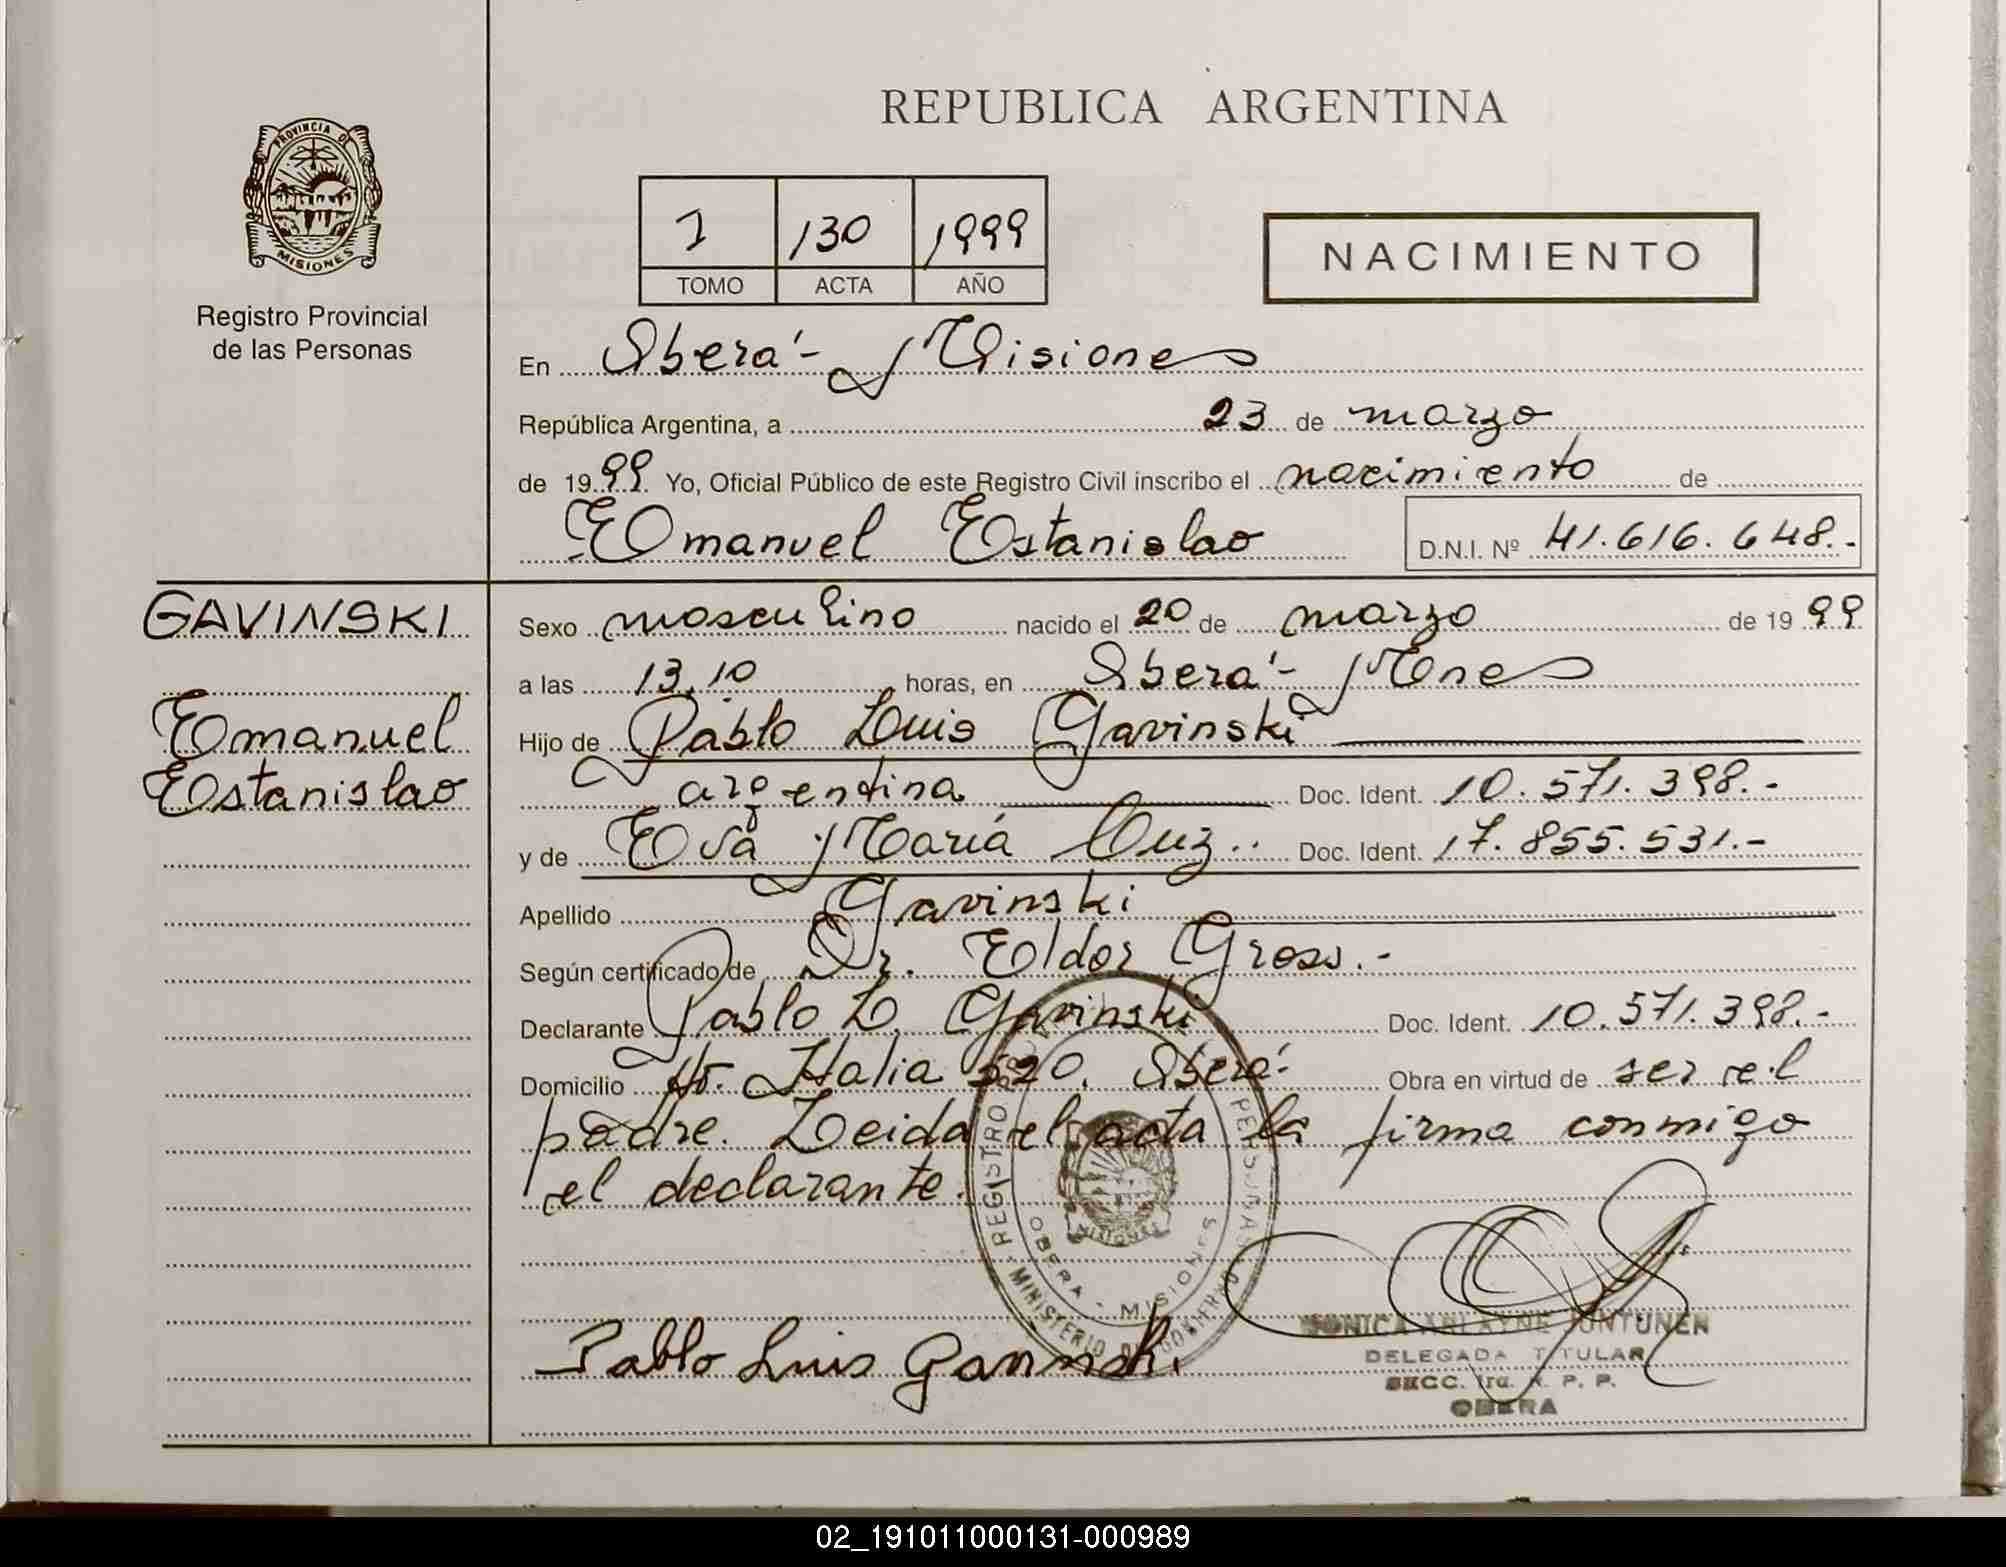 REPUBLICA ARGENTINA
PROVINCIA DE
MISIONES
Registro Provincial
de las Personas
1 130 1999
TOMO ACTA AÑO
NACIMIENTO
En Oberá - Misiones
República Argentina, a 23 de marzo
de 1999 Yo, Oficial Público de este Registro Civil inscribo el nacimiento de
Emanuel Estanislao D.N.I. Nº 41.616.648.-
GAVINSKI
Emanuel
Estanislao
Sexo masculino nacido el 20 de marzo de 1999
a las 13,10 horas, en Oberá - Mnes
Hijo de Pablo Luis Gavinski
argentina Doc. Ident. 10.571.398.-
y de Eva María Cuz.. Doc. Ident. 17.855.531.-
Apellido Gavinski
Según certificado de Dr. Eldor Gross.-
Declarante Pablo L. Gavinski Doc. Ident. 10.571.398.-
Domicilio Italia 520. Oberá- Obra en virtud de ser el
padre. Leida el acta la firma conmigo
el declarante.
REGISTRO PERSONAS
MINISTERIO DE GOBIERNO
OBERA - MISIONES
MISIONES
Pablo Luis Gavinski
MONICA TUNEN
DELEGADA TITULAR
SECC. 1ra. R. P. P.
OBERA
02_191011000131-000989